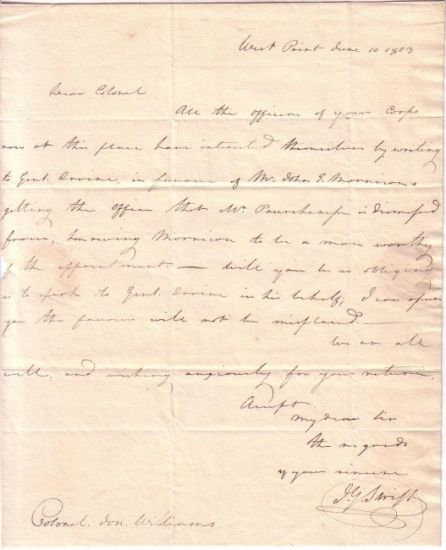 West Point June 10 1803
Dear Colonel
All the officers of your Corps
now at this place have interested themselves by writing
to Genl. Irvine, in favour of Mr. John G. Morrison's
getting the office that Mr. is dismissed
from, knowing Morrison to be a man worthy
of the appointment — will you be so obliging
as to speak to Genl. Irvine in his behalf, I can
you the favour will not be misplaced. —
We are all
well, and wishing anxiously for your return,
Accept
my dear Sir
the regards
of your sincere
J. G. Swift
Colonel. Jon. Williams